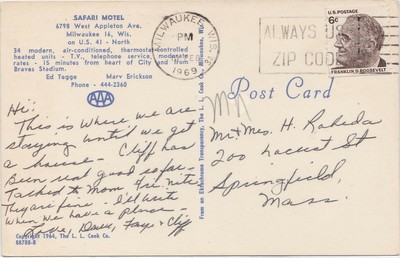 SAFARI MOTEL
6798 West Appleton Ave.
Milwaukee 16, Wis.
on U.S. 41 - North
34 modern, air-conditioned, thermostat-controlled
heated units - T.V., telephone service, moderate
rates - 15 minutes from heart of City and from
Braves Stadium.
Ed Tagge Marv Erickson
Phone - 444-2360
AAA
Hi:
This is where we are
staying until we get
a house - Cliff has
been real good so far -
Talked to Mom Fri. nite
They are fine - I'll write
when we have a place -
Love, Dave, Faye & Cliff
Copyright 1964, The L. L. Cook Co.
88788-B
From an Ektachrome Transparency, The L. L. Cook Co., Milwaukee, Wis.
MILWAUKEE, WIS.
PM
1969
ALWAYS USE
ZIP CODE
U.S. POSTAGE
6c
FRANKLIN D. ROOSEVELT
Post Card
Mr & Mrs. H. Rakeda
200 Locust St
Springfield
Mass.